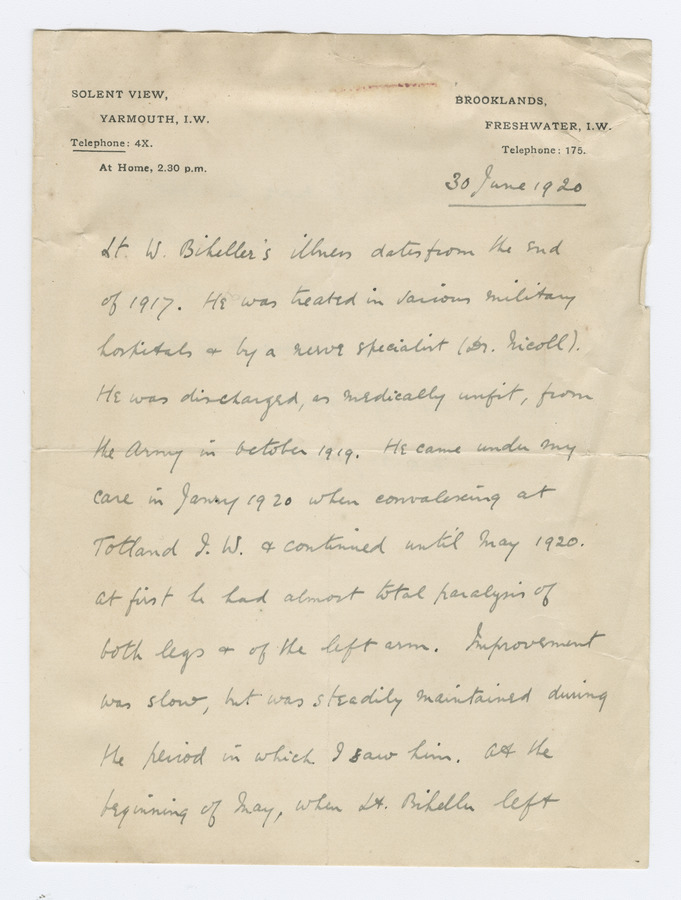 SOLENT VIEW,
YARMOUTH, I.W.
Telephone: 4X.
At Home, 2.30 p.m.
BROOKLANDS,
FRESHWATER, I.W.
Telephone: 175.
30 June 1920
Lt. W. Biheller's illness dates from the end
of 1917. He was treated in various military
hospitals & by a nerve specialist (Dr. Nicoll).
He was discharged, as medically unfit, from
the Army in October 1919. He came under my
care in Janry 1920 when convalescing at
Totland I.W. & continued until May 1920.
At first he had almost total paralysis of
both legs & of the left arm. Improvement
was slow, but was steadily maintained during
the period in which I saw him. At the
beginning of May, when Lt. Biheller left